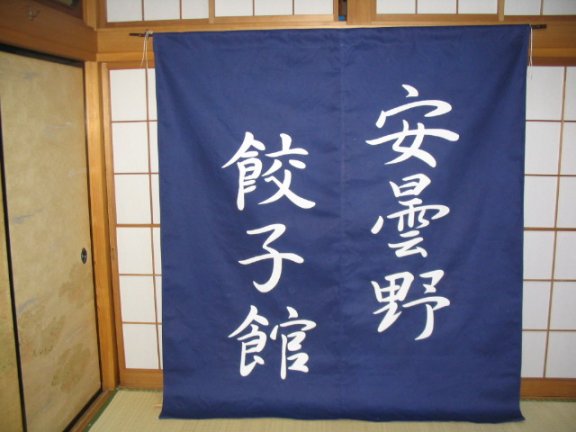 安曇野
餃子館